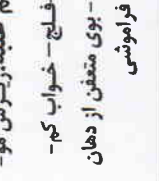 ریزش مو-
فلج - خواب کم-
- بوی متعفن از دهان
فراموشی